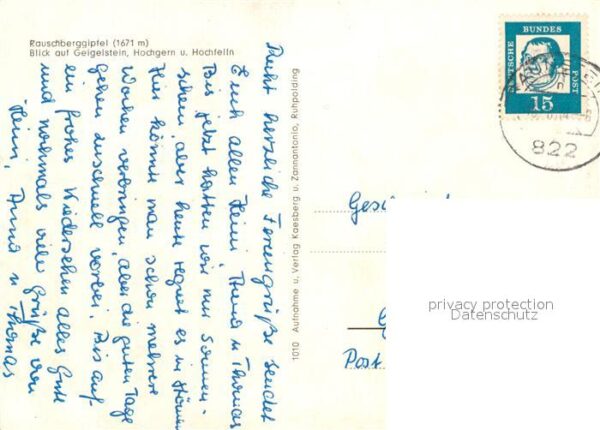 Rauschberggipfel (1671 m)
Blick auf Geigelstein, Hochgern u. Hochfelln
Recht herzliche Feriengrüße sendet
Euch allen Heini Anna u Thomas
Bis jetzt hatten wir nur Sonnen-
schein, aber heute regnet es in Strömen
Hier könnte man schon mehrere
Wochen verbringen, aber die guten Tage
gehen zu schnell vorbei. Bis auf
ein frohes Wiedersehen alles Gute
und nochmals viele Grüße von
Heini, Anna u Thomas
1010 Aufnahme u. Verlag Kaesberg u. Zannantonio, Ruhpolding
DEUTSCHE BUNDESPOST
15
822
Post
privacy protection
Datenschutz